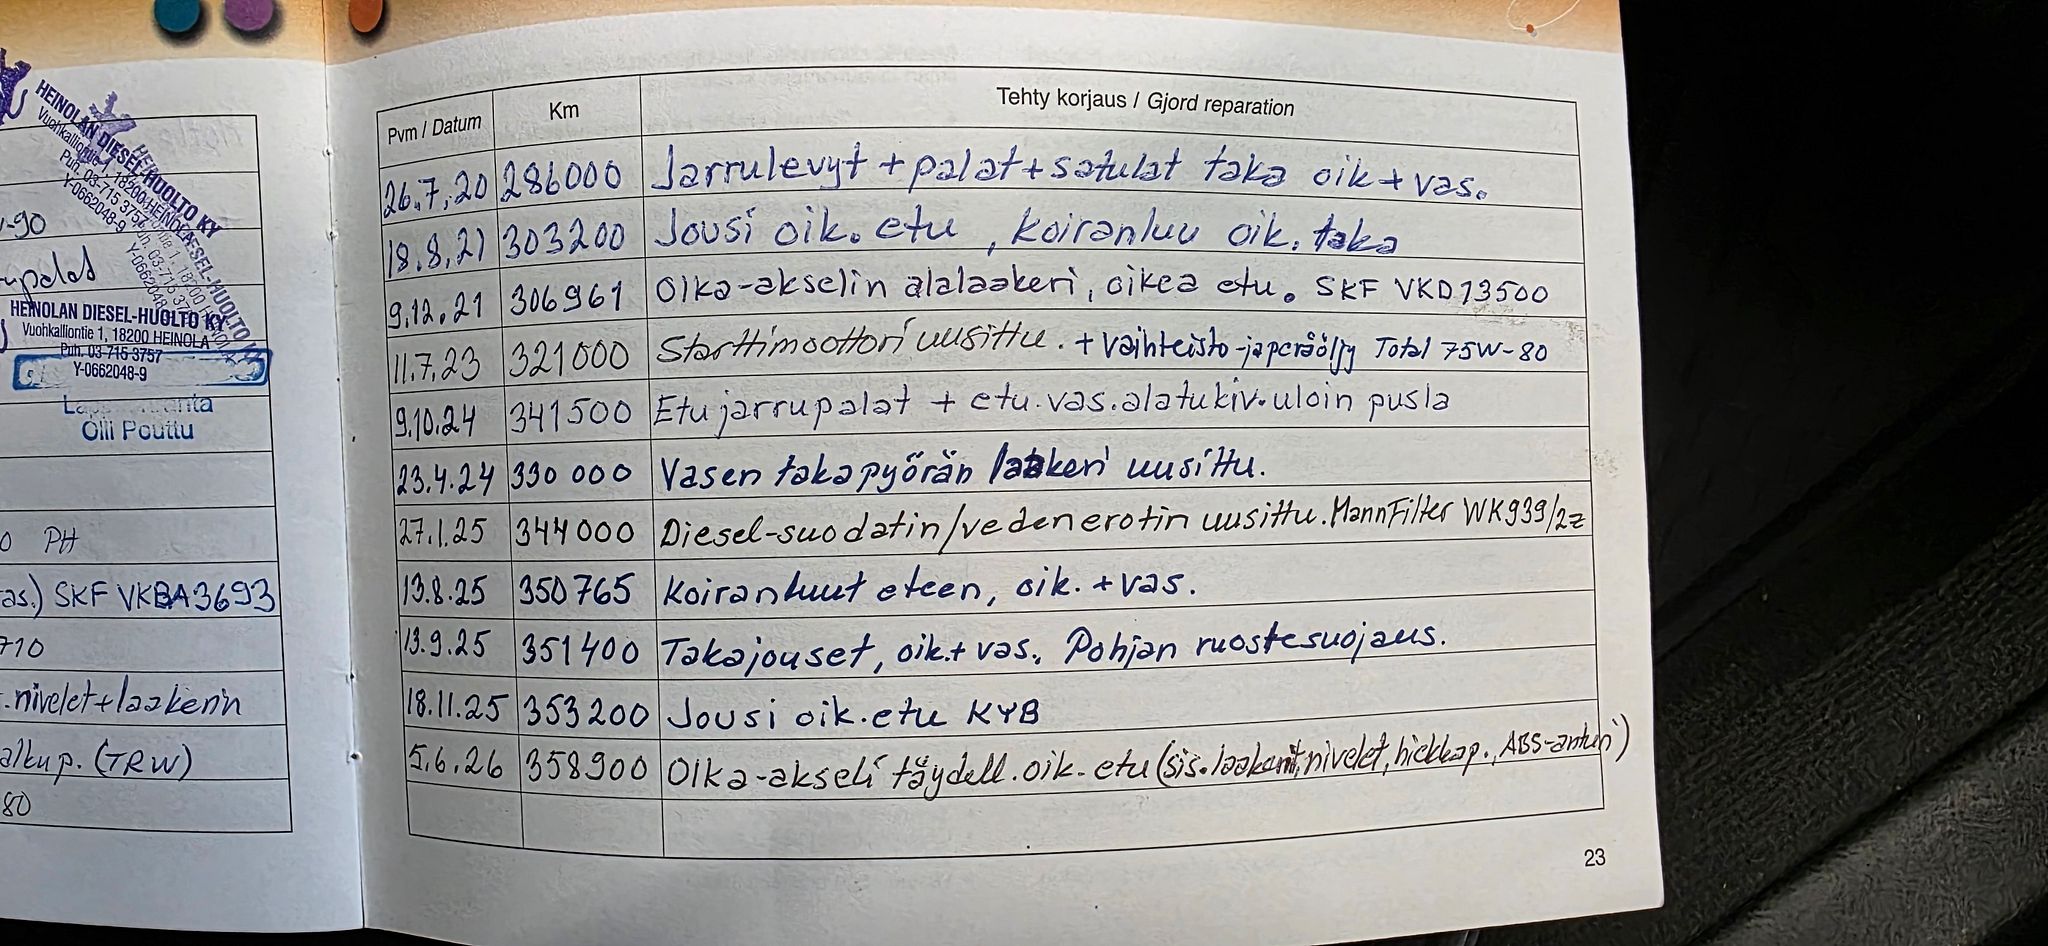 HEINOLAN DIESEL-HUOLTO KY
Vuohkalliontie 1, 18200 HEINOLA
Puh. 03-715 3757
Y-0662048-9
-90
palat
HEINOLAN DIESEL-HUOLTO KY
Vuohkalliontie 1, 18200 HEINOLA
Puh. 03-715 3757
Y-0662048-9
Olli Pouttu
0 PH
as.) SKF VKBA3693
710
. nivelet+laakerin
alkup. (TRW)
80
Pvm / Datum Km Tehty korjaus / Gjord reparation
26.7.20 286000 Jarrulevyt + palat + satulat taka oik + vas.
18.8.21 303200 Jousi oik. etu, koiranluu oik. taka
9.12.21 306961 Olka-akselin alalaakeri, oikea etu. SKF VKD13500
11.7.23 321000 Starttimoottori uusittu. + vaihteisto-ja peräöljy Total 75W-80
9.10.24 341500 Etujarrupalat + etu.vas.alatukiv.uloin pusla
23.4.24 330 000 Vasen takapyörän laakeri uusittu.
27.1.25 344000 Diesel-suodatin/vedenerotin uusittu. MannFilter WK939/2z
13.8.25 350765 Koiranluut eteen, oik. + vas.
13.9.25 351400 Takajouset, oik.+ vas. Pohjan ruostesuojaus.
18.11.25 353200 Jousi oik.etu KYB
5.6.26 358900 Olka-akseli täydell. oik. etu (sis. laakerit, nivelet, hiekkap., ABS-anturi)
23